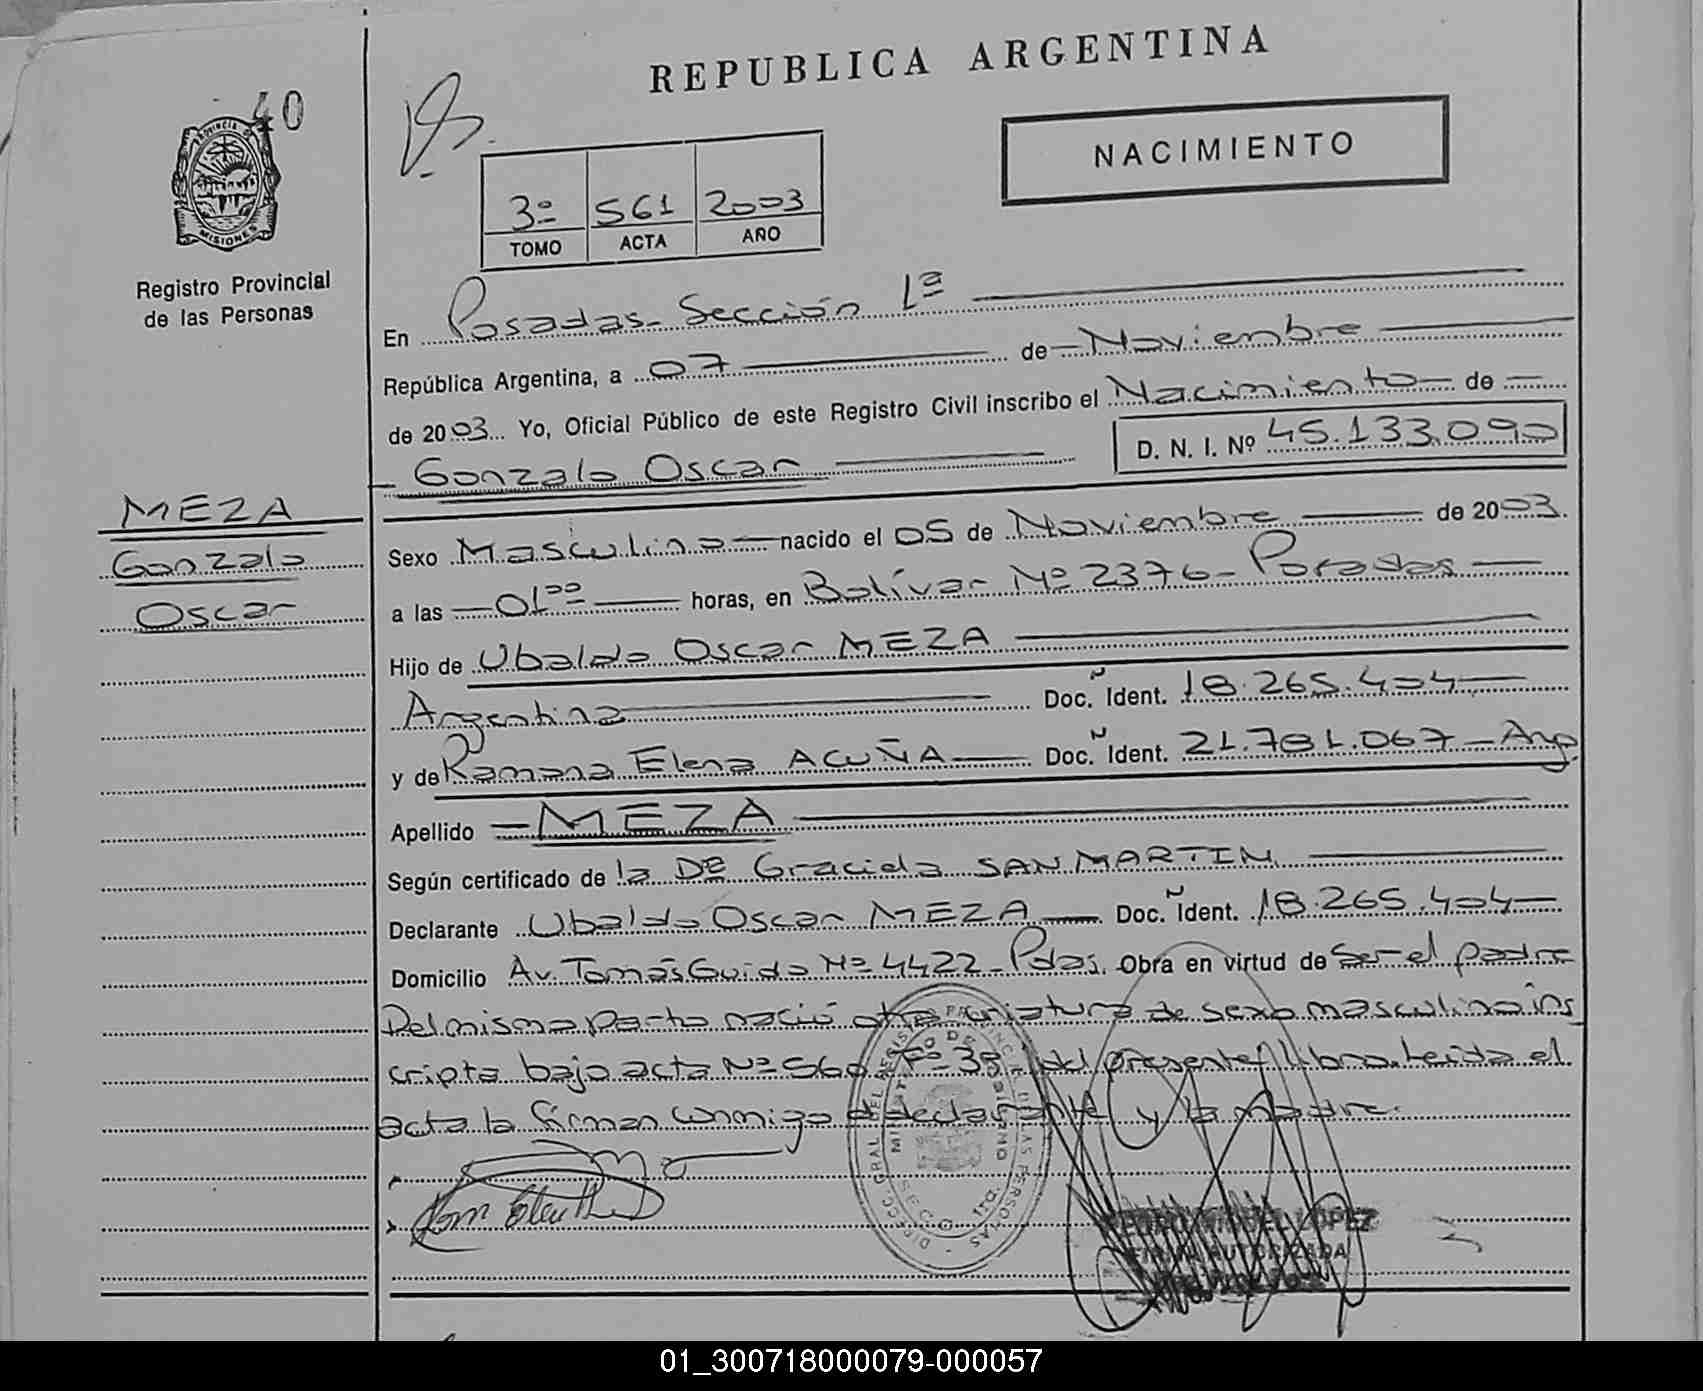 REPUBLICA ARGENTINA
40
NACIMIENTO
PROVINCIA DE
MISIONES
3º 561 2003
TOMO ACTA AÑO
Registro Provincial
de las Personas
En Posadas - Sección 1ª
República Argentina, a 07 de Noviembre
de 2003. Yo, Oficial Público de este Registro Civil inscribo el Nacimiento de
Gonzalo Oscar D. N. I. Nº 45.133.090
MEZA
Gonzalo
Oscar
Sexo Masculino nacido el 05 de Noviembre de 2003.
a las 01ºº horas, en Bolívar Nº 2376 - Posadas
Hijo de Ubaldo Oscar MEZA
Argentina Doc. Ident. 18.265.404
y de Ramona Elena ACUÑA Doc. Ident. 21.781.067 - Arg.
Apellido MEZA
Según certificado de la Dª Graciela SAN MARTIN
Declarante Ubaldo Oscar MEZA Doc. Ident. 18.265.404
Domicilio Av. Tomás Guido Nº 4422 - Pdas. Obra en virtud de ser el padre
Del mismo parto nació otra criatura de sexo masculino ins
cripta bajo acta Nº 560 Fº 39 del presente libro. Leída el
acta la firman conmigo el declarante y la madre.
LOPEZ
FIRMA AUTORIZADA
01_300718000079-000057